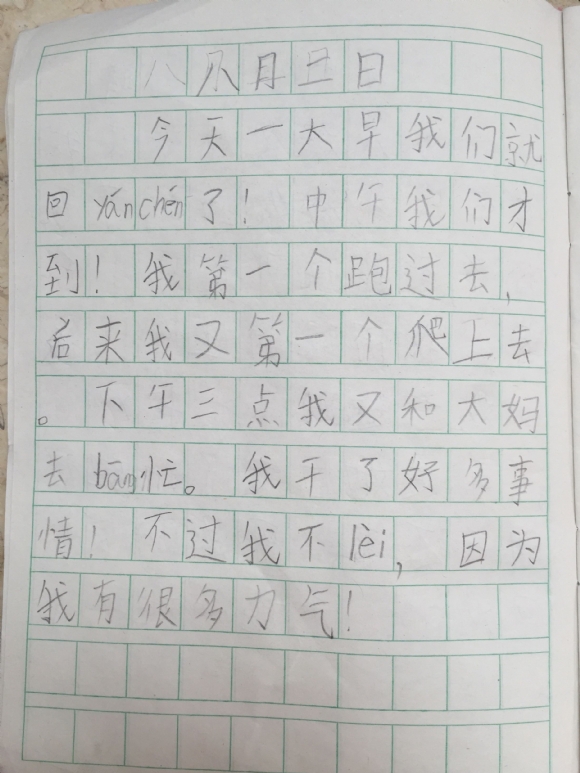 八月五日
今天一大早我们就
回yánchén了!中午我们才
到!我第一个跑过去,
后来我又第一个爬上去
。下午三点我又和大妈
去bāng忙。我干了好多事
情!不过我不lèi,因为
我有很多力气!